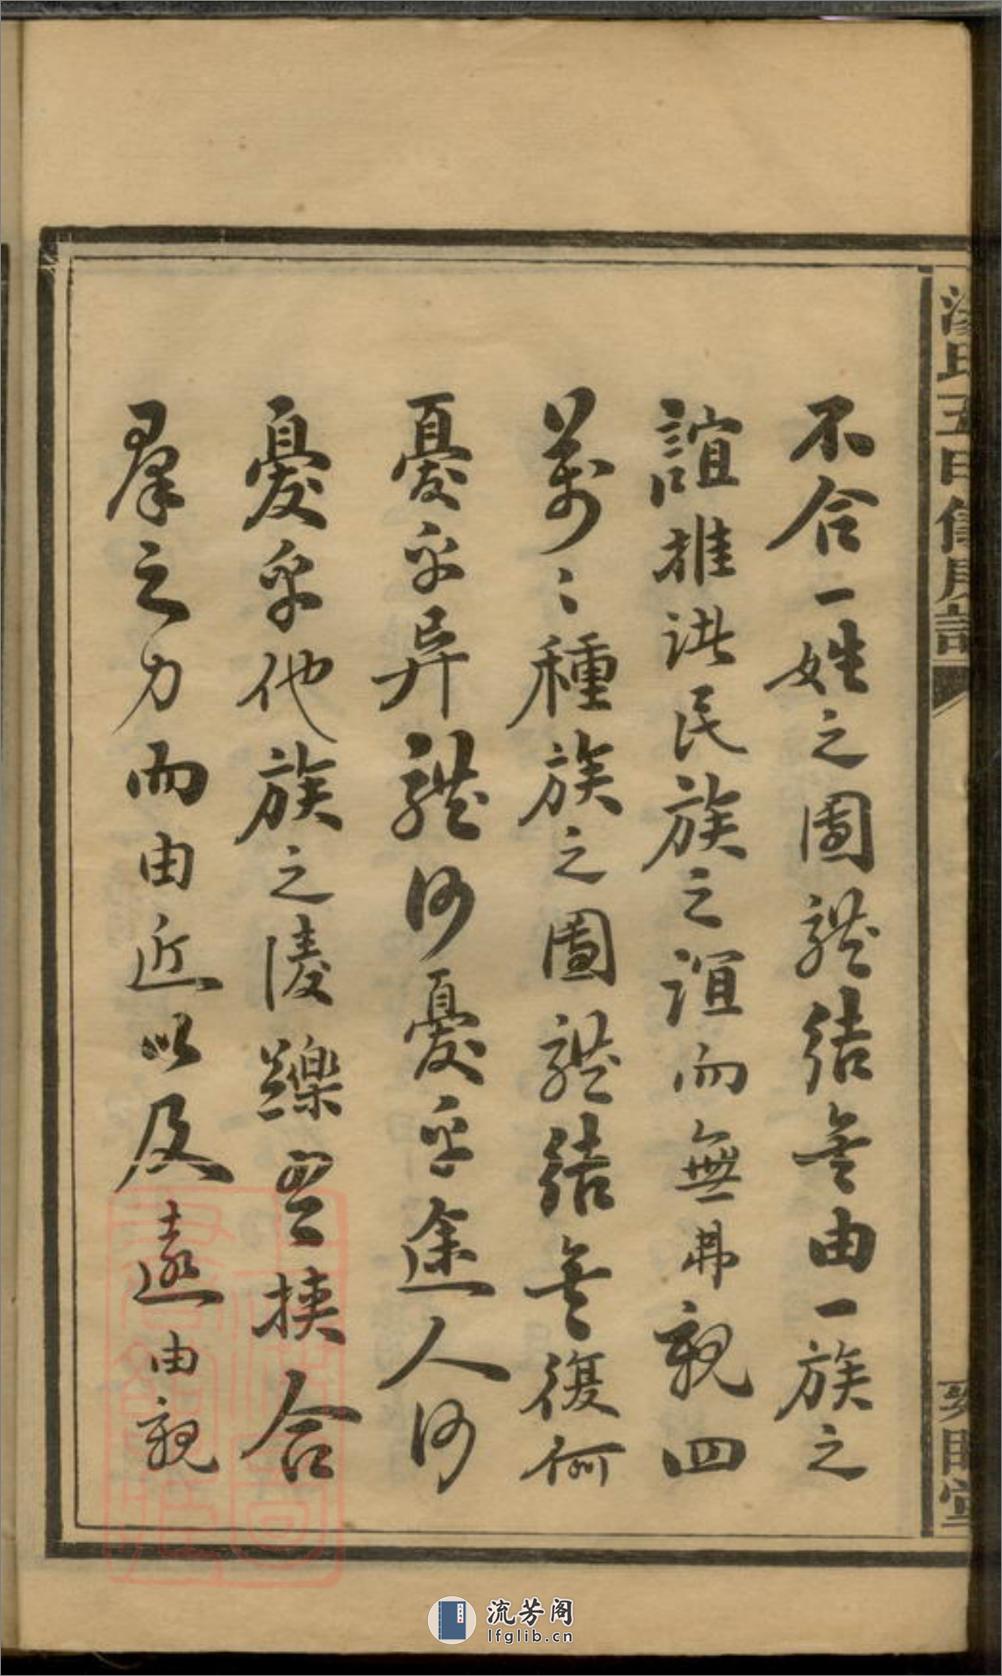 不合一姓之團體結無由一族之
誼推洪民族之誼而無弗親四
萬〻種族之團體結無復何
憂乎异體何憂乎途人何
憂乎他族之陵轢哉挾合
羣之力而由近以及遠由親
五甲傳房譜
睦堂
流芳阁
lfglib.cn